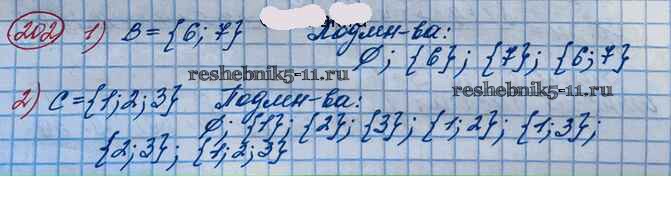 202 1) B = {6; 7} Подмн-ва:
∅; {6}; {7}; {6; 7}
reshebnik5-11.ru
reshebnik5-11.ru
2) C = {1; 2; 3} Подмн-ва:
∅; {1}; {2}; {3}; {1; 2}; {1; 3};
{2; 3}; {1; 2; 3}